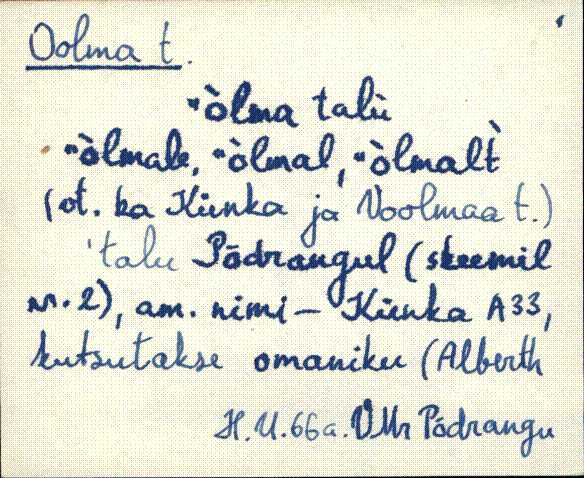 Oolma t.
"òlma talù
"òlmale, "òlmal, "òlmalt̀
(vt. ka Künka ja Voolmaa t.)
'talu Põdrangul (skeemil
nr. 2), am. nimi – Künka A33,
kutsutakse omaniku (Alberth
H.U. 66a. VMr Põdrangu